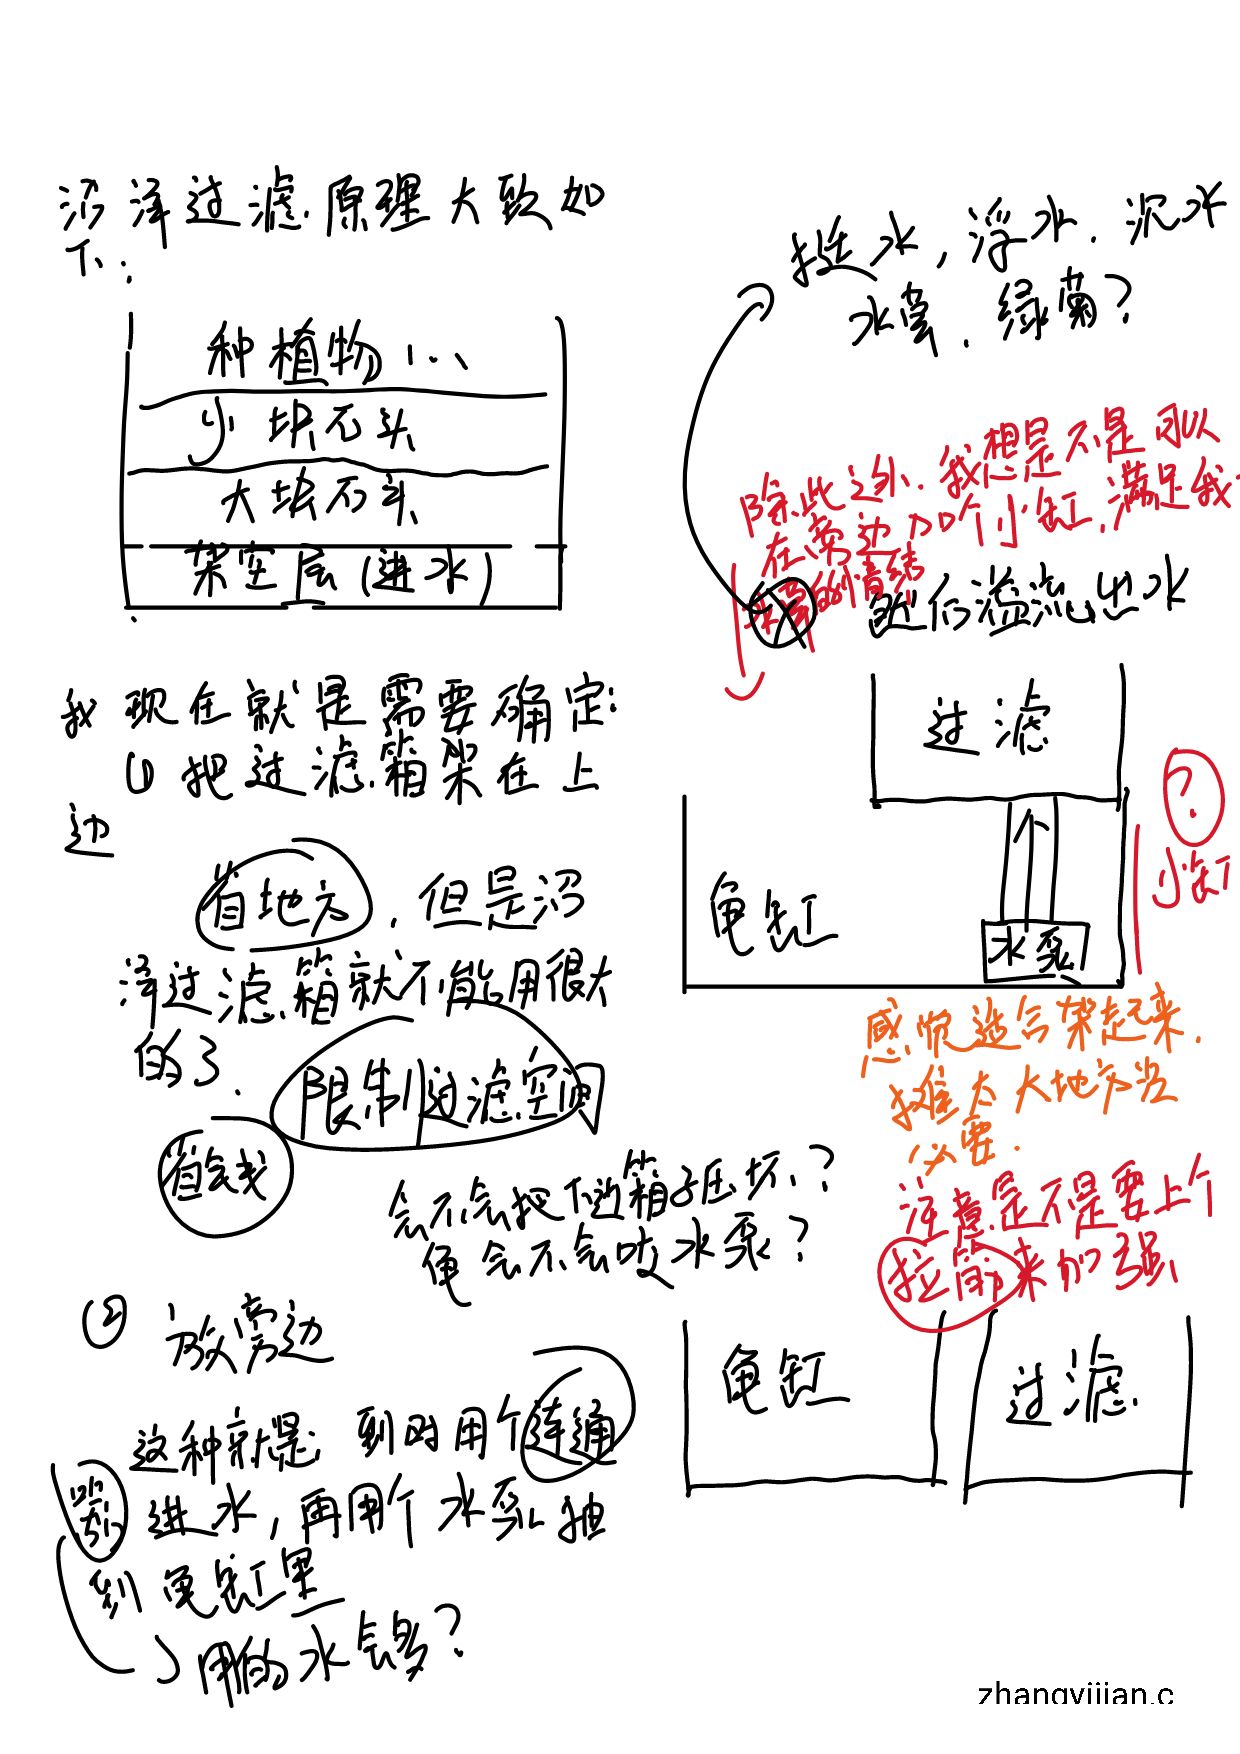 沼泽过滤原理大致如
下:
种植物...
小块石头
大块石头
架空层(进水)
我现在就是需要确定:
① 把过滤箱架在上
边
省地方,但是沼
泽过滤箱就不能用很大
的了.
限制过滤空间
省钱
会不会把下边箱子压坏?
龟会不会咬水泵?
② 放旁边
这种就是到时用个连通
器进水,再用个水泵抽
到龟缸里
用的水会多?
挺水,浮水.沉水
水草.绿菊?
除此之外.我想是不是可以
在旁边加个小缸,满足我
水草的情结
溢流出水
过滤
龟缸
水泵
?
小缸
感觉适合架起来.
摊太大地方没
必要.
注意是不是要上个
拉筋来加强
龟缸
过滤
zhangyijian.c